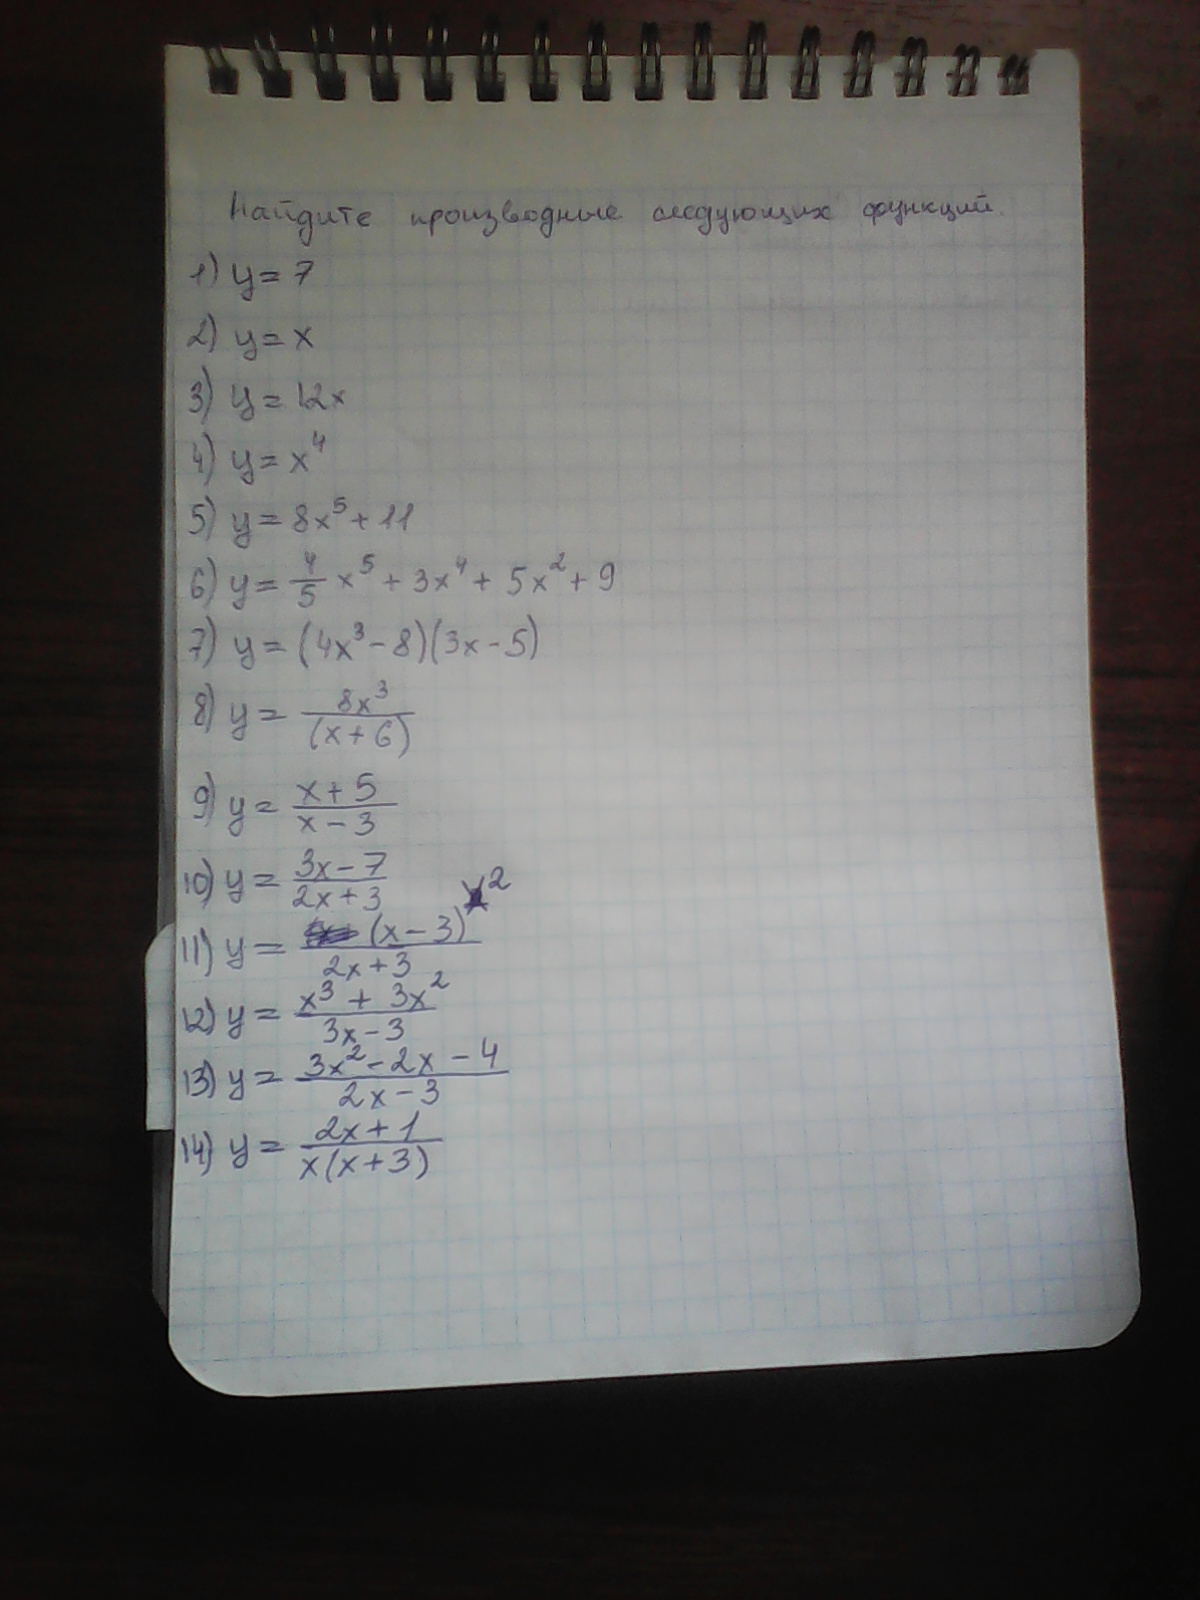 Найдите производные следующих функций.
1) y = 7
2) y = x
3) y = 12x
4) y = x⁴
5) y = 8x⁵ + 11
6) y = 4/5 x⁵ + 3x⁴ + 5x² + 9
7) y = (4x³ - 8)(3x - 5)
8) y = 8x³/(x + 6)
9) y = x + 5/x - 3
10) y = 3x - 7/2x + 3
11) y = (x - 3)²/2x + 3
12) y = x³ + 3x²/3x - 3
13) y = 3x² - 2x - 4/2x - 3
14) y = 2x + 1/x(x + 3)